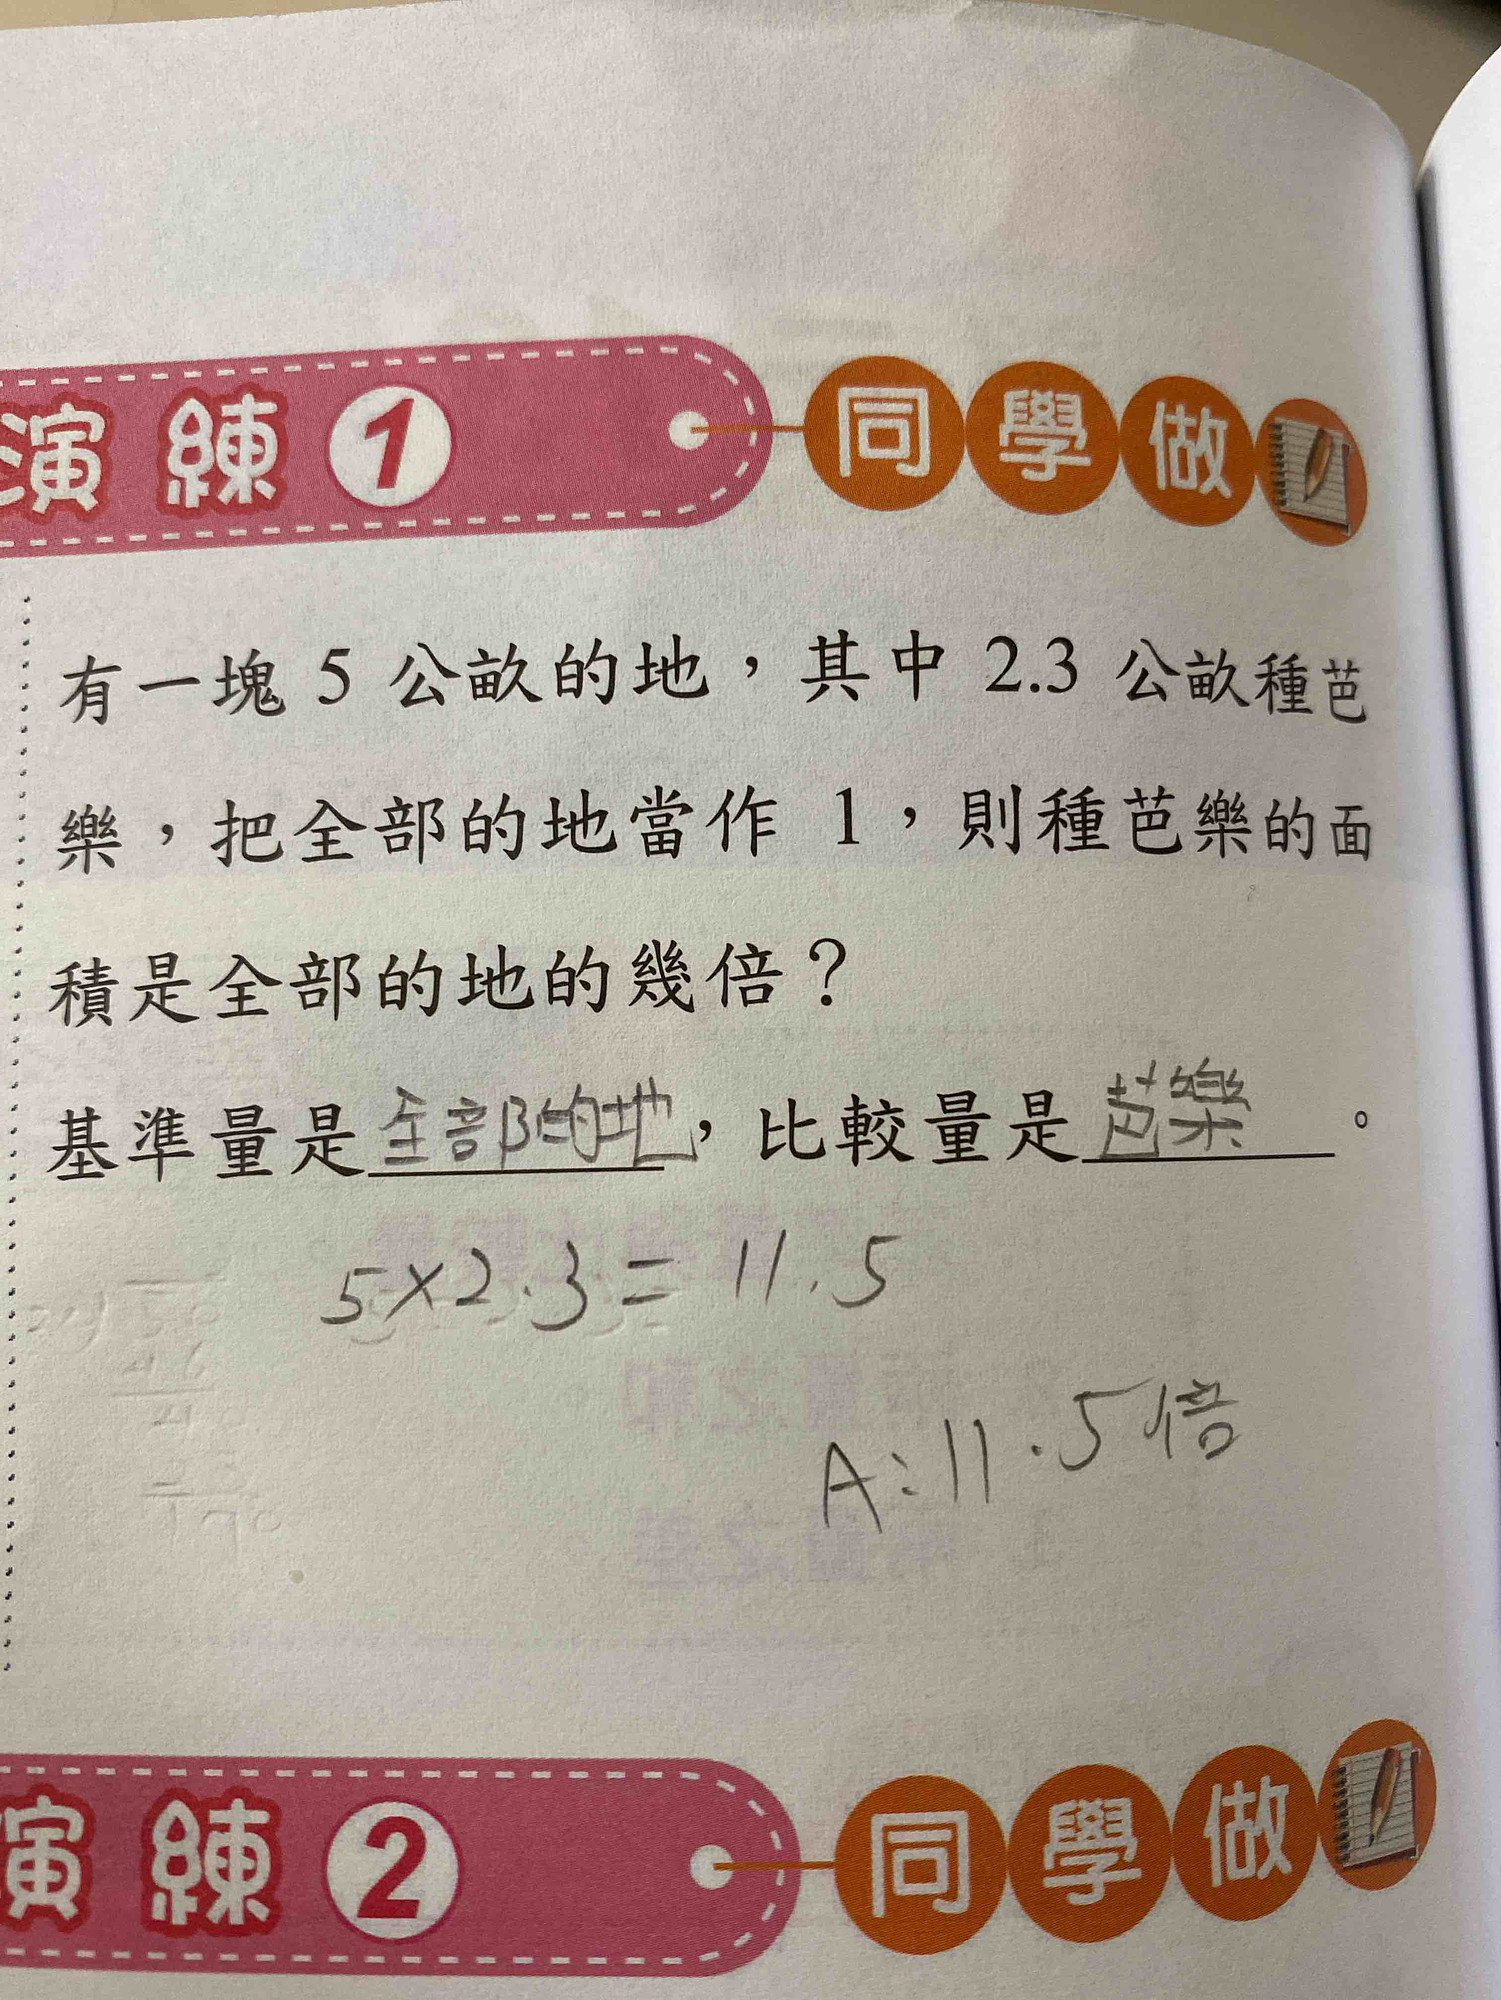 演練1 同學做
有一塊 5 公畝的地，其中 2.3 公畝種芭
樂，把全部的地當作 1，則種芭樂的面
積是全部的地的幾倍？
基準量是全部的地，比較量是芭樂。
5×2.3=11.5
A:11.5倍
演練2 同學做